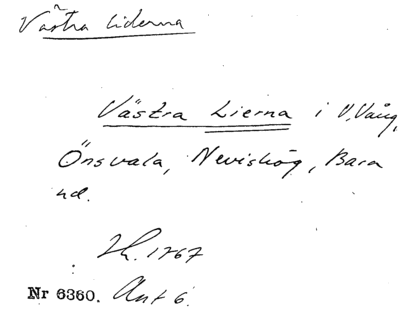 Västra Liderna
Västra Lierna i V. Vång,
Önsvala, Nevishög, Bara
hd.
Sk. 1767
Nr 6360. Avt 6.